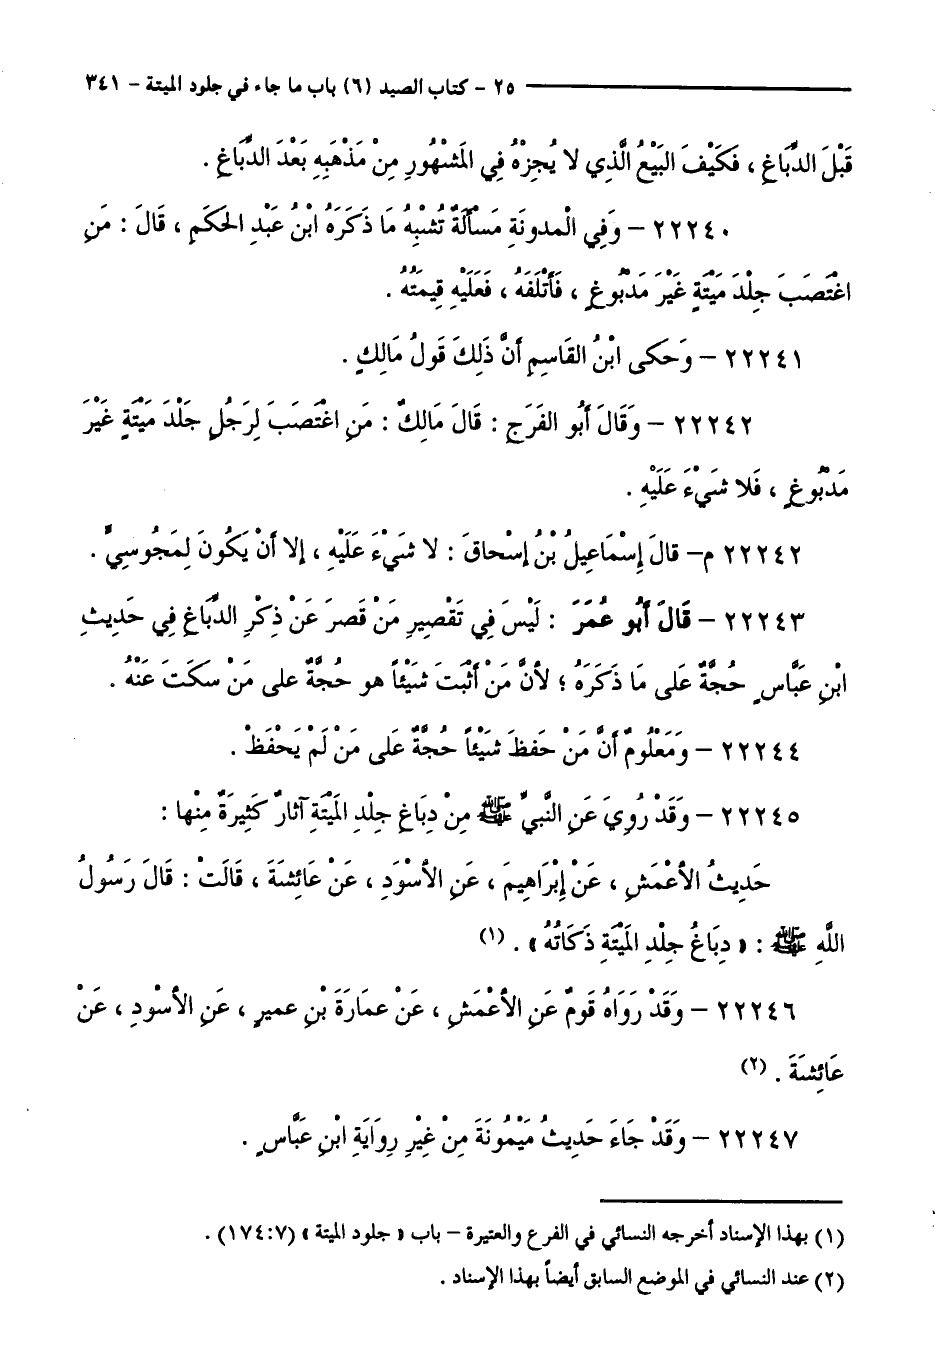 ٢٥ - كتاب الصيد (٦) باب ما جاء في جلود الميتة - ٣٤١
قَبْلَ الدِّبَاغِ ، فَكَيْفَ البَيْعُ الَّذِي لا يُجِزْهُ فِي المَشْهُورِ مِنْ مَذْهَبِهِ بَعْدَ الدِّبَاغِ .
٢٢٢٤٠ - وَفِي الْمدونَةِ مَسْأَلَةٌ تُشْبِهُ مَا ذَكَرَهُ ابْنُ عَبْدِ الحَكَمِ ، قَالَ : مَنِ
اغْتَصَبَ جِلْدَ مَيْتَةٍ غَيْرَ مَدْبُوغٍ ، فَأَتْلَفَهُ ، فَعَلَيْهِ قِيمَتُهُ .
٢٢٢٤١ - وَحَكى ابْنُ القَاسِمِ أَنَّ ذَلِكَ قَولُ مَالِكٍ .
٢٢٢٤٢ - وَقَالَ أَبُو الفَرَجِ : قَالَ مَالِكٌ : مَنِ اغْتَصَبَ لِرَجُلٍ جِلْدَ مَيْتَةٍ غَيْرَ
مَدْبُوغٍ ، فَلا شَيْءَ عَلَيْهِ .
٢٢٢٤٢ م- قالَ إِسْمَاعِيلُ بْنُ إِسْحاقَ : لا شَيْءَ عَلَيْهِ ، إِلا أَنْ يَكُونَ لِمَجُوسِيٍّ .
٢٢٢٤٣ - قَالَ أَبُو عُمَرَ : لَيْسَ فِي تَقْصِيرِ مَنْ قَصرَ عَنْ ذِكْرِ الدِّبَاغِ فِي حَدِيثِ
ابْنِ عَبَّاسٍ حُجَّةٌ عَلَى مَا ذَكَرَهُ ؛ لأنَّ مَنْ أَثْبَتَ شَيْئاً هو حُجَّةٌ على مَنْ سكَتَ عَنْهُ .
٢٢٢٤٤ - وَمَعْلُومٌ أَنَّ مَنْ حَفظَ شَيْئاً حُجَّةٌ عَلَى مَنْ لَمْ يَحْفَظْ .
٢٢٢٤٥ - وَقَدْ رُوِيَ عَنِ النَّبيِّ ﷺ مِنْ دِبَاغِ جِلْدِ المَيْتَةِ آثَارٌ كَثِيرَةٌ مِنْها :
حَدِيثُ الأَعْمَشِ ، عَنْ إِبْرَاهِيمَ ، عَنِ الأسْوَدِ ، عَنْ عَائِشَةَ ، قَالَتْ : قَالَ رَسُولُ
اللَّهِ ﷺ : « دِبَاغُ جِلْدِ المَيْتَةِ ذَكَاتُهُ » . (١)
٢٢٢٤٦ - وَقَدْ رَوَاهُ قَومٌ عَنِ الأَعْمَشِ ، عَنْ عمَارَةَ بْنِ عميرٍ ، عَنِ الأسْودِ ، عَنْ
عَائِشَةَ . (٢)
٢٢٢٤٧ - وَقَدْ جَاءَ حَدِيثُ مَيْمُونَةَ مِنْ غَيْرِ رِوَايَةِ ابْنِ عَبَّاسٍ .
(١) بهذا الإسناد أخرجه النسائي في الفرع والعتيرة – باب « جلود الميتة » (١٧٤:٧) .
(٢) عند النسائي في الموضع السابق أيضاً بهذا الإسناد .